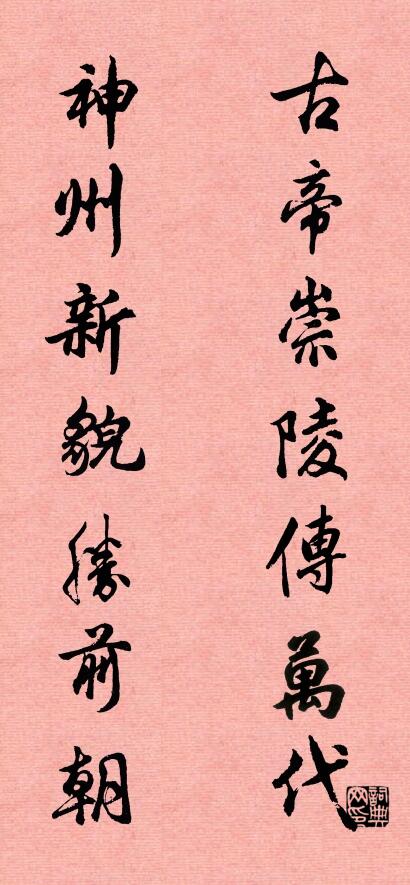 古帝崇陵傳萬代
神州新貌勝前朝
詞典網印